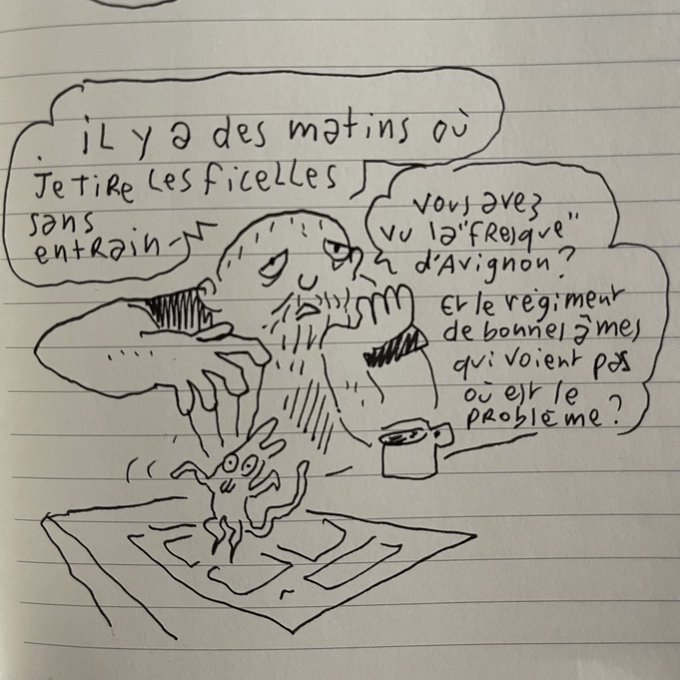 iL Y a des matins où
Je tire Les ficelles
sans
entrain
vous avez
vu la "fresque"
d'Avignon?
Et le régiment
de bonnes âmes
qui voient pas
où est le
problème?